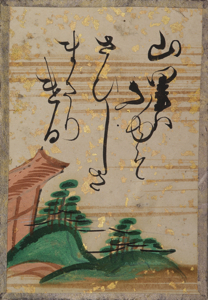 山里はふゆそ
さひしさ
まさりける